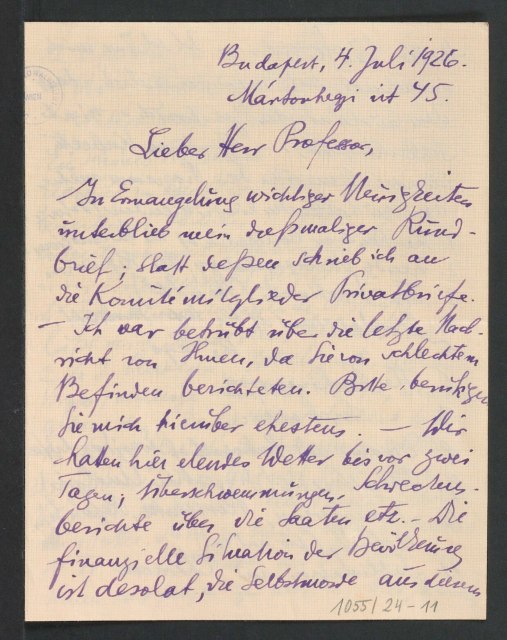 Budapest, 4. Juli 1926.
Mártonhegyi út 45.
Lieber Herr Professor,
In Ermangelung wichtiger Neuigkeiten
unterblieb mein dießmaliger Rund-
brief; statt deßen schrieb ich an
die Komitémitglieder Privatbriefe.
– Ich war betrübt über die letzte Nach-
richt von Ihnen, da Sie von schlechtem
Befinden berichteten. Bitte, beruhigen
Sie mich hierüber ehestens. – Wir
hatten hier elendes Wetter bis vor zwei
Tagen; Überschwemmungen, Schreckens-
berichte über die Saaten etc. – Die
finanzielle Situation der Bevölkerung
ist desolat, die Selbstmorde aus diesem
1055/24-11